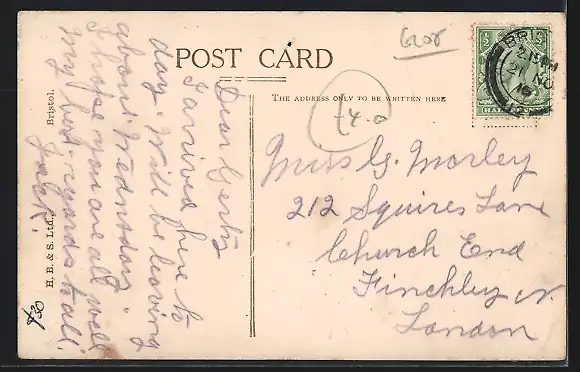 Glos
POST CARD
THE ADDRESS ONLY TO BE WRITTEN HERE
£4.0
½
BRIS
2.15 PM
21 NO
16
HALF
Dear Gerty
I arrived here to
day. Will be leaving
about Wednsday.
I hope you are all well
My best regards to all.
Jack.
Miss G. Morley
212 Squires Lane
Church End
Finchley N.
London
H. B. & S. Ltd., Bristol.